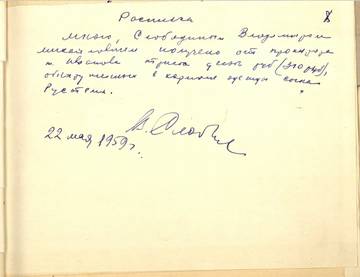 Расписка
Мною, Слободиным Владимиром
Михайловичем получено от прокурора
т. Иванова триста десять руб (310 руб),
обнаруженные в кармане одежды сына
Рустема.
22 мая 1959 г. В. Слободин